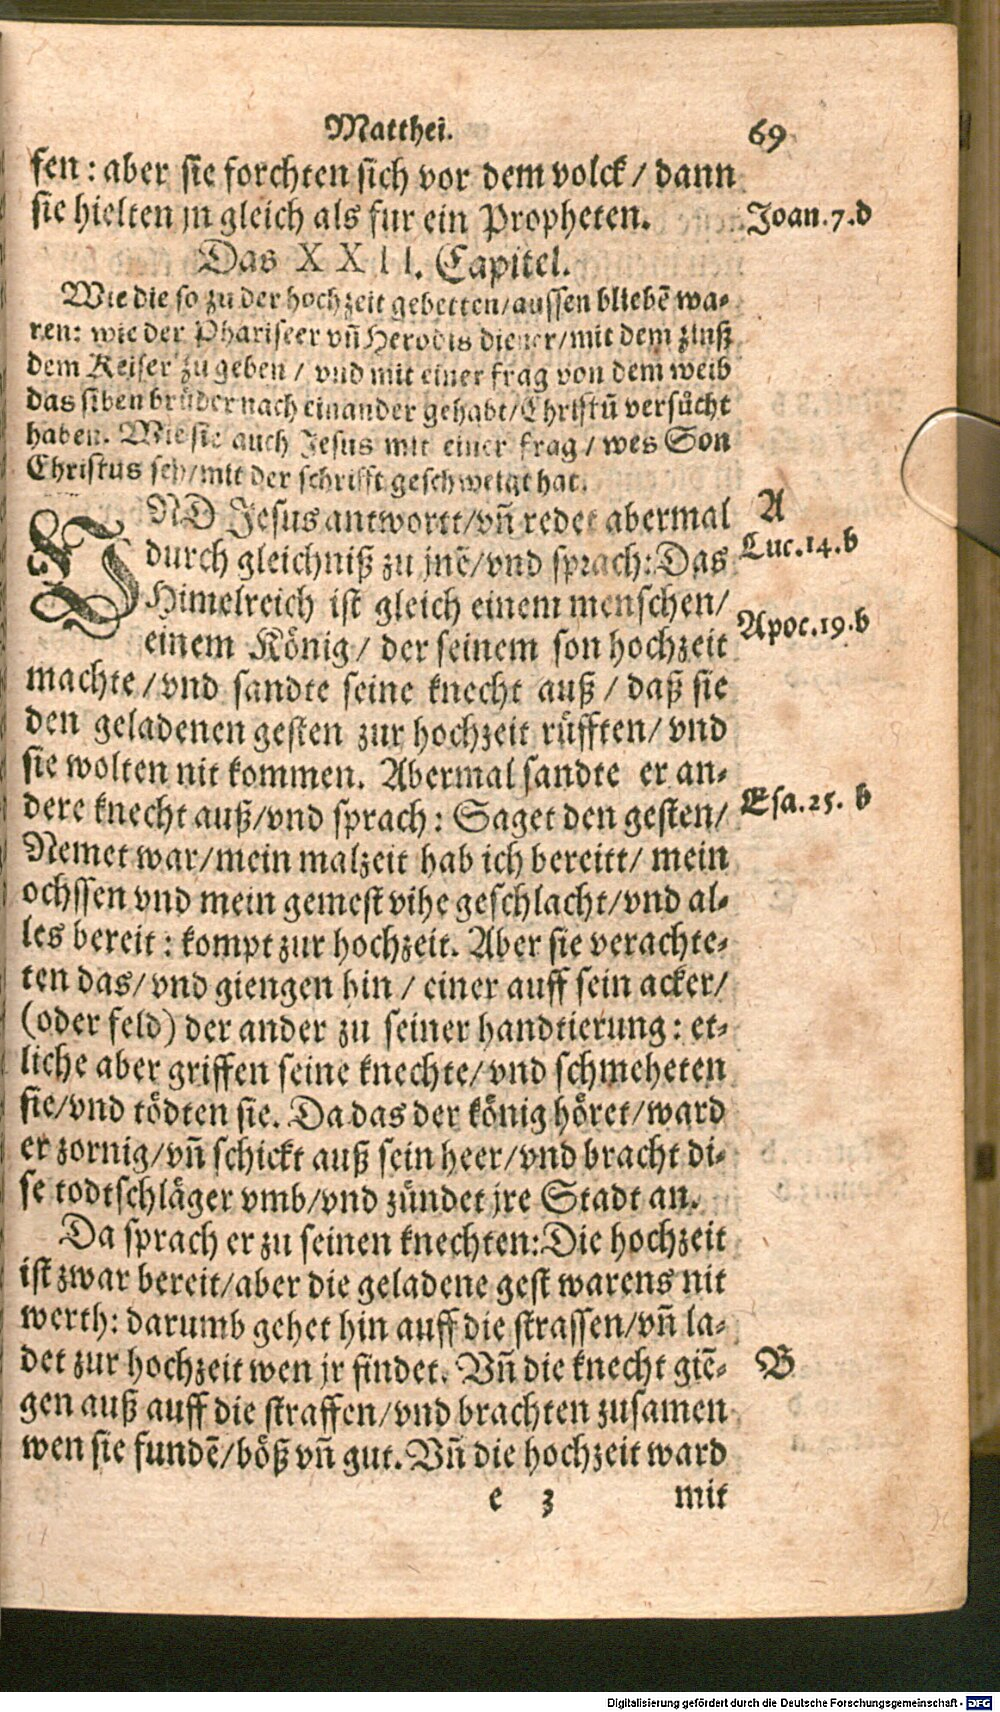 Matthei. 69
fen: aber sie forchten sich vor dem volck/ dann
sie hielten jn gleich als fur ein Propheten. Joan.7.d
Das XXII. Capitel.
Wie die so zu der hochzeit gebetten/aussen bliebē wa-
ren: wie der Phariseer vñ Herodis diener/mit dem zinß
dem Keiser zu geben / vnd mit einer frag von dem weib
das siben brüder nach einander gehabt/Christū versücht
haben. Wie sie auch Jesus mit einer frag/ wes Son
Christus sey/mit der schrifft geschweigt hat.
VND Jesus antwortt/vñ redet abermal A
durch gleichniß zu jnē/vnd sprach: Das Luc.14.b
Himelreich ist gleich einem menschen/
einem König/ der seinem son hochzeit Apoc.19.b
machte/vnd sandte seine knecht auß/ daß sie
den geladenen gesten zur hochzeit rüfften/ vnd
sie wolten nit kommen. Abermal sandte er an-
dere knecht auß/vnd sprach: Saget den gesten/ Esa.25. b
Nemet war/mein malzeit hab ich bereitt/ mein
ochssen vnd mein gemest vihe geschlacht/vnd al-
les bereit: kompt zur hochzeit. Aber sie verachte-
ten das/vnd giengen hin / einer auff sein acker/
(oder feld) der ander zu seiner handtierung: et-
liche aber griffen seine knechte/vnd schmeheten
sie/vnd tödten sie. Da das der könig höret/ward
er zornig/vñ schickt auß sein heer/vnd bracht di-
se todtschläger vmb/vnd zündet jre Stadt an.
Da sprach er zu seinen knechten: Die hochzeit
ist zwar bereit/aber die geladene gest warens nit
werth: darumb gehet hin auff die strassen/vñ la-
det zur hochzeit wen jr findet. Vñ die knecht giē- B
gen auß auff die straffen/vnd brachten zusamen
wen sie fundē/böß vñ gut. Vñ die hochzeit ward
e 3 mit
Digitalisierung gefördert durch die Deutsche Forschungsgemeinschaft - DFG